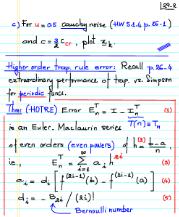 189-2
c) For u = 0.5 cauchy noise (HW 5.1.4 p. 25-1)
and c = 3/2 c_cr, plot z_k.
Higher order trap. rule error: Recall p. 26-4
extraordinary performance of trap. vs. Simpson
for periodic funcs.
Thm: (HOTRE) Error E_n^T = I - I_n^T (1)
T(n) = T_n
is an Euler. Maclaurin series
of even orders (even powers) of h = (b-a)/n (2)
i.e., E_n^T = Σ a_i h^{2i} (3)
a_i = d_i [f^{(2i-1)}(b) - f^{(2i-1)}(a)] (4)
d_i = - B_{2i} / (2i)! (5)
Bernoulli number